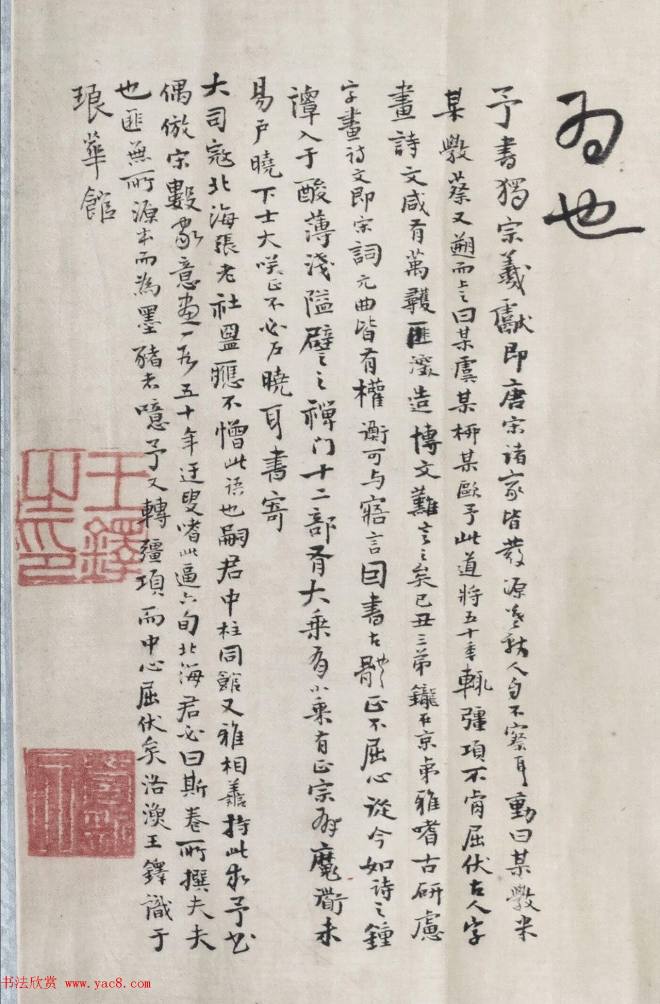 為也
予書獨宗羲獻即唐宋諸家皆發源羲獻人自不察耳動曰某學米
某學蔡又遡而上之曰某虞某柳某歐予此道將五十年輒彊項不肯屈伏古人字
畫詩文咸有萬彟匪深造博文難言之矣己丑三弟鑨於京弟雅嗜古研慮
字畫詩文即宗詞元曲皆有權衡可与寤言曰書古體也正不屈心從今如詩之鐘
譚入于酸薄淺隘辟之禪门十二部有大乘有小乘有正宗有魔衜未
易户曉下士大咲正不必户曉耳書寄
大司寇北海張老社盟應不憎此語也嗣君中柱同館又雅相善持此求予書
偶倣宋數家意畫一卷五十年迂叟嗜此逼六旬北海君必曰斯卷所撰夫夫
也匪無所源本而為墨豬者噫予又轉彊項而中心屈伏矣洛漁王鐸識于
琅華館
王鐸之印
书法欣赏 www.yac8.com